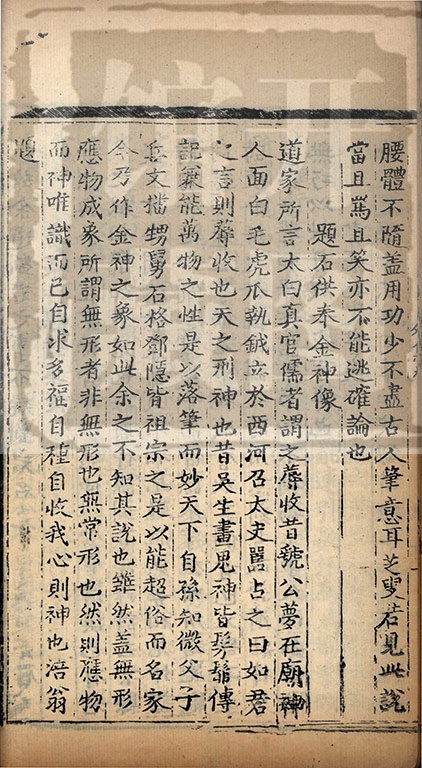 腰體不隨盖用功少不盡古人筆意耳芝叟若見此說
當且罵且笑亦不能逃確論也
題石供奉金神像
道家所言太白真官儒者謂之蓐收昔虢公夢在廟神
人面白毛虎爪執鉞立於西河召太史嚚占之曰如君
之言則蓐收也天之刑神也昔吳生畫鬼神皆髣髴傳
記兼能萬物之性是以落筆而妙天下自孫知微父子
岳文擋甥舅石格鄧隱皆祖宗之是以能超俗而名家
今乃作金神之象如此余之不知其說也雖然盖無形
應物成象所謂無形者非無形也無常形也然則應物
而神唯識而已自求多福自種自收我心則神也涪翁
題